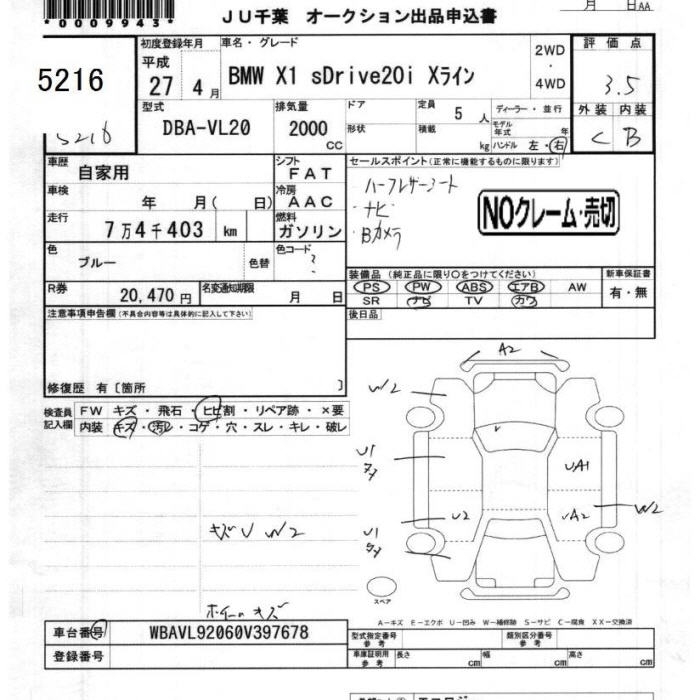 *0009943*
JU千葉 オークション出品申込書
月 日AA
5216
5216
初度登録年月
平成
27 4月
車名・グレード
BMW X1 sDrive20i Xライン
2WD
・
4WD
評価点
3.5
外装 内装
C B
型式
DBA-VL20
排気量
2000
CC
ドア
形状
定員 5 人
積載 kg
ディーラー・並行
モデル年式 年
ハンドル 左・右
車歴
自家用
シフト
FAT
車検 年 月( 日)
冷房
AAC
走行
7万4千403 km
燃料
ガソリン
色
ブルー
色替
色コード
R券 20,470円
名変通知期限 月 日
セールスポイント(正常に機能するものに限ります)
ハーフレザーシート
・ナビ
・Bカメラ
NOクレーム・売切
装備品(純正品に限り○をつけてください)
PS PW ABS エアB AW
SR ナビ TV カワ
新車保証書
有・無
後日品
注意事項申告欄(不具合内容等は具体的に記入して下さい)
修復歴 有〔箇所 〕
検査員記入欄
FW キズ・飛石・ヒビ割・リペア跡・×要
内装 キズ・汚レ・コゲ・穴・スレ・キレ・破レ
キズU W2
ホイールキズ
A2
W2
U1
UA1
U2
UA2
W2
U1
スペア
A-キズ E-エクボ U-凹み W-補修跡 S-サビ C-腐食 XX-交換済
車台番号 WBAVL92060V397678
登録番号
型式指定番号
参考
類別区分番号
参考
車庫証明用
参考
長さ cm
幅 cm
高さ cm